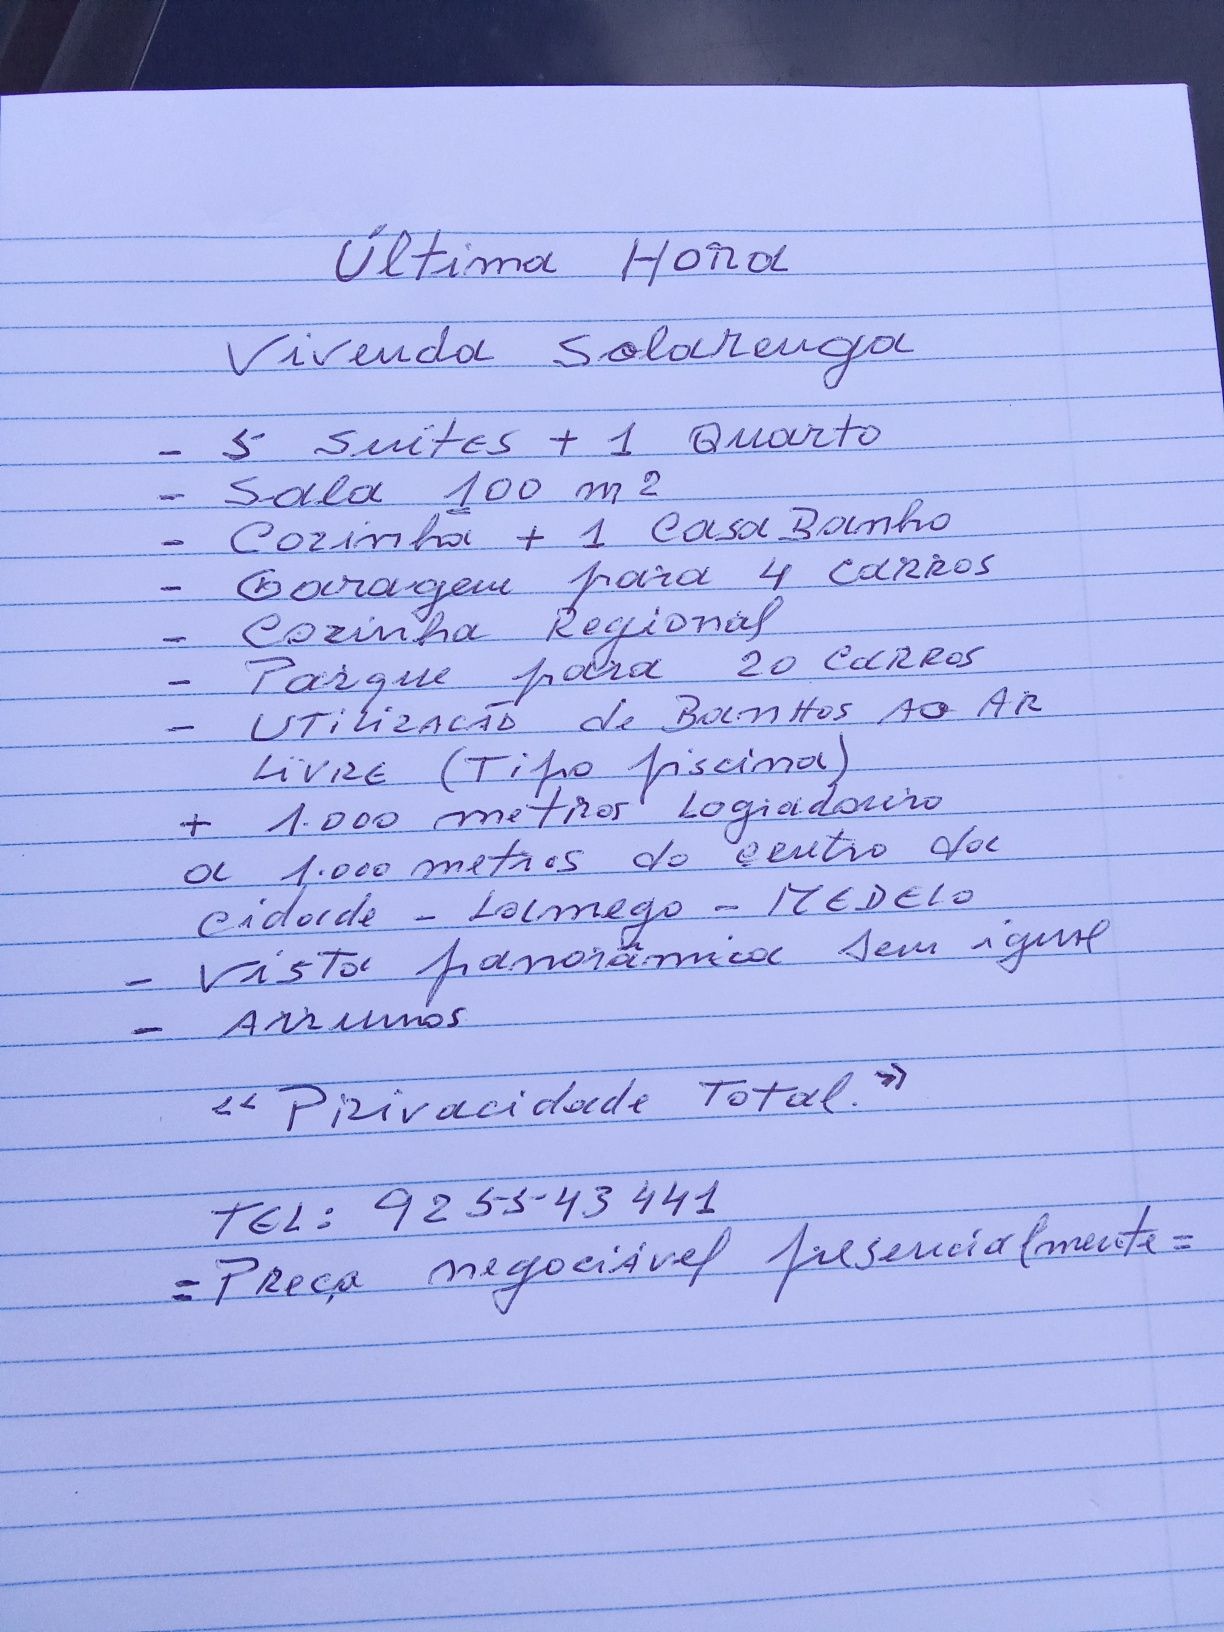 Última Hora
Vivenda Solarenga
- 5 Suites + 1 Quarto
- Sala 100 m2
- Cozinha + 1 Casa Banho
- Garagem para 4 carros
- Cozinha Regional
- Parque para 20 carros
- Utilização de Banhos ao ar
livre (Tipo piscina)
+ 1.000 metros Logradouro
a 1.000 metros do centro da
cidade - Lamego - MEDELO
- Vista panorâmica sem igual
- Arrumos
"Privacidade Total."
TEL: 925543441
= Preço negociável presencialmente =